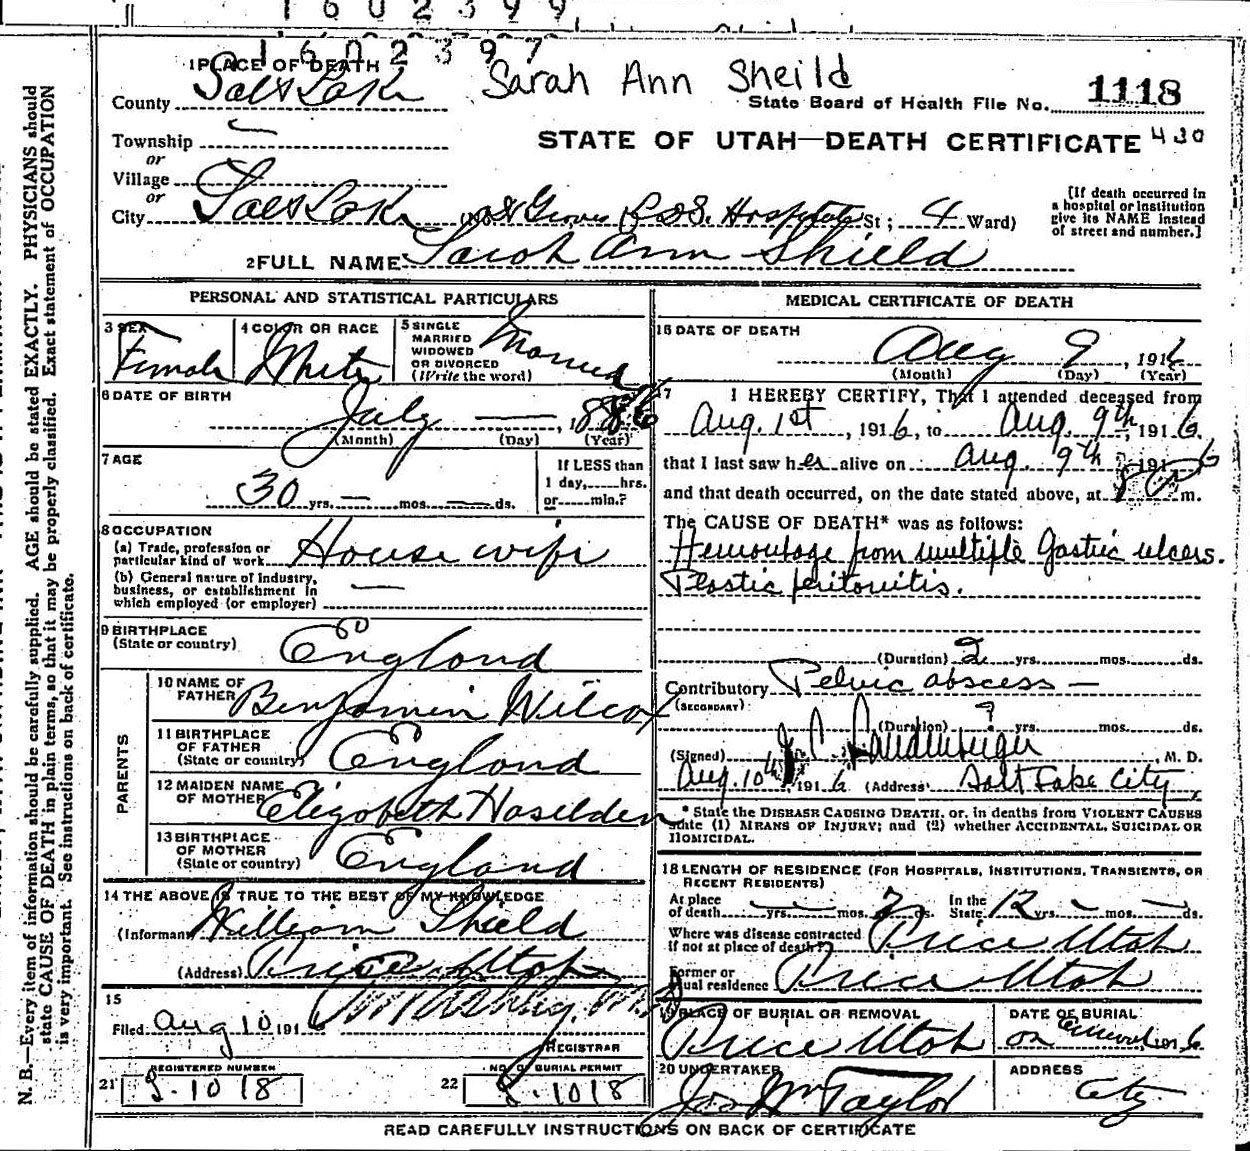 1602399
1602397
1 PLACE OF DEATH
Sarah Ann Sheild
County Salt Lake
State Board of Health File No. 1118
Township
or
STATE OF UTAH—DEATH CERTIFICATE 430
Village
or
City Salt Lake (No. St Groves L D S. Hospital St; 4 Ward)
[If death occurred in
a hospital or institution
give its NAME instead
of street and number.]
2 FULL NAME Sarah Ann Shield
PERSONAL AND STATISTICAL PARTICULARS
3 SEX Female
4 COLOR OR RACE White
5 SINGLE
MARRIED
WIDOWED
OR DIVORCED
(Write the word) Married
6 DATE OF BIRTH
July — , 1886
(Month) (Day) (Year)
7 AGE
30 yrs. — mos. — ds.
If LESS than
1 day, hrs.
or min.?
8 OCCUPATION
(a) Trade, profession or
particular kind of work House wife
(b) General nature of industry,
business, or establishment in
which employed (or employer) —
9 BIRTHPLACE
(State or country) England
PARENTS
10 NAME OF
FATHER Benjamin Wilcox
11 BIRTHPLACE
OF FATHER
(State or country) England
12 MAIDEN NAME
OF MOTHER Elizabeth Haselden
13 BIRTHPLACE
OF MOTHER
(State or country) England
14 THE ABOVE IS TRUE TO THE BEST OF MY KNOWLEDGE
(Informant William Shield
(Address) Price Utah
15
Filed Aug 10 1916
REGISTRAR
REGISTERED NUMBER
21 S-1018
NO. OF BURIAL PERMIT
22 S-1018
MEDICAL CERTIFICATE OF DEATH
16 DATE OF DEATH
Aug 9, 1916
(Month) (Day) (Year)
17 I HEREBY CERTIFY, That I attended deceased from
Aug. 1st, 1916, to Aug. 9th, 1916.
that I last saw her alive on Aug. 9th, 1916
and that death occurred, on the date stated above, at m.
The CAUSE OF DEATH* was as follows:
Hemorrhage from multiple gastric ulcers.
Plastic peritonitis.
(Duration) 2 yrs. mos. ds.
Contributory Pelvic abscess —
(SECONDARY)
(Duration) ? yrs. mos. ds.
(Signed) J. C. Landenberger, M. D.
Aug. 10th, 1916 (Address) Salt Lake City
* State the DISEASE CAUSING DEATH, or, in deaths from VIOLENT CAUSES
state (1) MEANS OF INJURY; and (2) whether ACCIDENTAL, SUICIDAL OR
HOMICIDAL.
18 LENGTH OF RESIDENCE (FOR HOSPITALS, INSTITUTIONS, TRANSIENTS, OR
RECENT RESIDENTS)
At place
of death — yrs. — mos. 7 ds. In the
State 12 yrs. — mos. — ds.
Where was disease contracted
if not at place of death? Price Utah
Former or
usual residence Price Utah
19 PLACE OF BURIAL OR REMOVAL
Price Utah
DATE OF BURIAL
20 UNDERTAKER
Jos Wm Taylor
ADDRESS
City
READ CAREFULLY INSTRUCTIONS ON BACK OF CERTIFICATE
N. B.—Every item of information should be carefully supplied. AGE should be stated EXACTLY. PHYSICIANS should
state CAUSE OF DEATH in plain terms, so that it may be properly classified. Exact statement of OCCUPATION
is very important. See instructions on back of certificate.